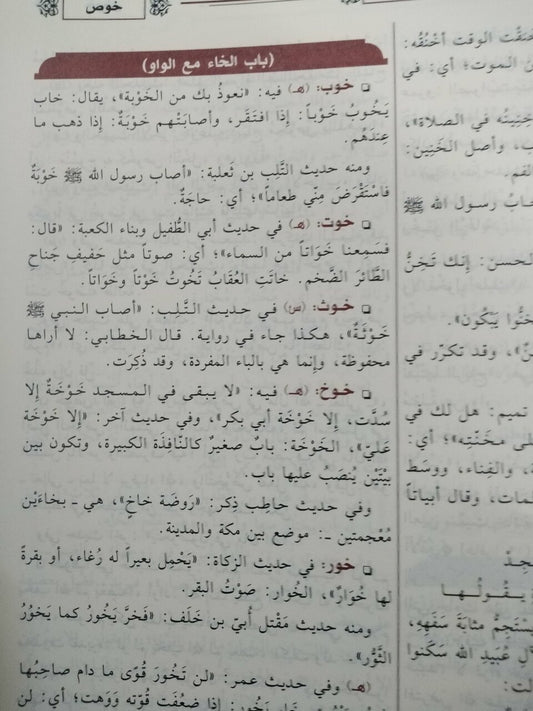 خوص
(باب الخاء مع الواو)
❑ خوب: (هـ) فيه: «نعوذُ بك من الخَوْبة»، يقال: خاب
يَخُوبُ خَوْباً: إذا افتَقَر، وأصابَتْهم خَوْبَةٌ: إذا ذهب ما
عِندَهُم.
ومنه حديث التَّلِب بن ثَعلبة: «أصاب رسول الله ﷺ خَوْبَةٌ
فاسْتَقْرَضَ مِنّي طعاماً»؛ أي: حاجَةٌ.
❑ خوت: (هـ) في حديث أبي الطُّفيل وبناء الكعبة: «قال:
فسَمِعنا خَوَاتاً من السماء»؛ أي: صوتاً مثل حَفيفِ جَناحِ
الطَّائرَ الضَّخم. خاتَتِ العُقابُ تَخُوتُ خَوْتاً وخَوَاتاً.
❑ خوث: (س) في حديث التَّلِب: «أصاب النبي ﷺ
خَوْثَةٌ»، هكذا جاء في رواية. قال الخطابي: لا أراها
محفوظة، وإنما هي بالباء المفردة، وقد ذُكِرَت.
❑ خوخ: (هـ) فيه: «لا يبقى في المسجد خَوْخَةٌ إلا
سُدَّت، إلا خَوْخَة أبي بكر»، وفي حديث آخر: «إلا خَوْخَة
عَليّ»، الخَوْخَة: بابٌ صغيرٌ كالنَّافِذَة الكبيرة، وتكون بين
بيْتَيْن يُنصَبُ عليها باب.
وفي حديث حاطِب ذِكر: «رَوضَة خاخٍ»، هي ـ بخاءَيْن
مُعْجمتين ـ: موضع بين مكة والمدينة.
❑ خور: في حديث الزكاة: «يَحْمِل بعيراً له رُغاء، أو بقرةً
لها خُوَارٌ»، الخُوار: صَوْتُ البقر.
ومنه حديث مَقْتل أُبيّ بن خَلَف: «فَخرَّ يَخُورُ كما يَخُوُرُ
الثَّوْر».
(هـ) وفي حديث عمر: «لن تَخُورَ قُوًى ما دام صاحِبُها
خَنَقْت الوقت أَخْنُقُه:
الموت»؛ أي: في
في الصلاة»،
وأصل الخَنِين:
الفم.
رسول الله ﷺ
الحسن: إنك تَخِنُّ
يَبْكُون».
وقد تكرّر في
تميم: هل لك في
مَخَنّتِه»؛ أي:
والفِناء، ووسَط
وقال أبياتاً
يـقـولُـهـا
مثابةَ سَفَهِهِ،
عُبَيدِ الله سَكَنوا